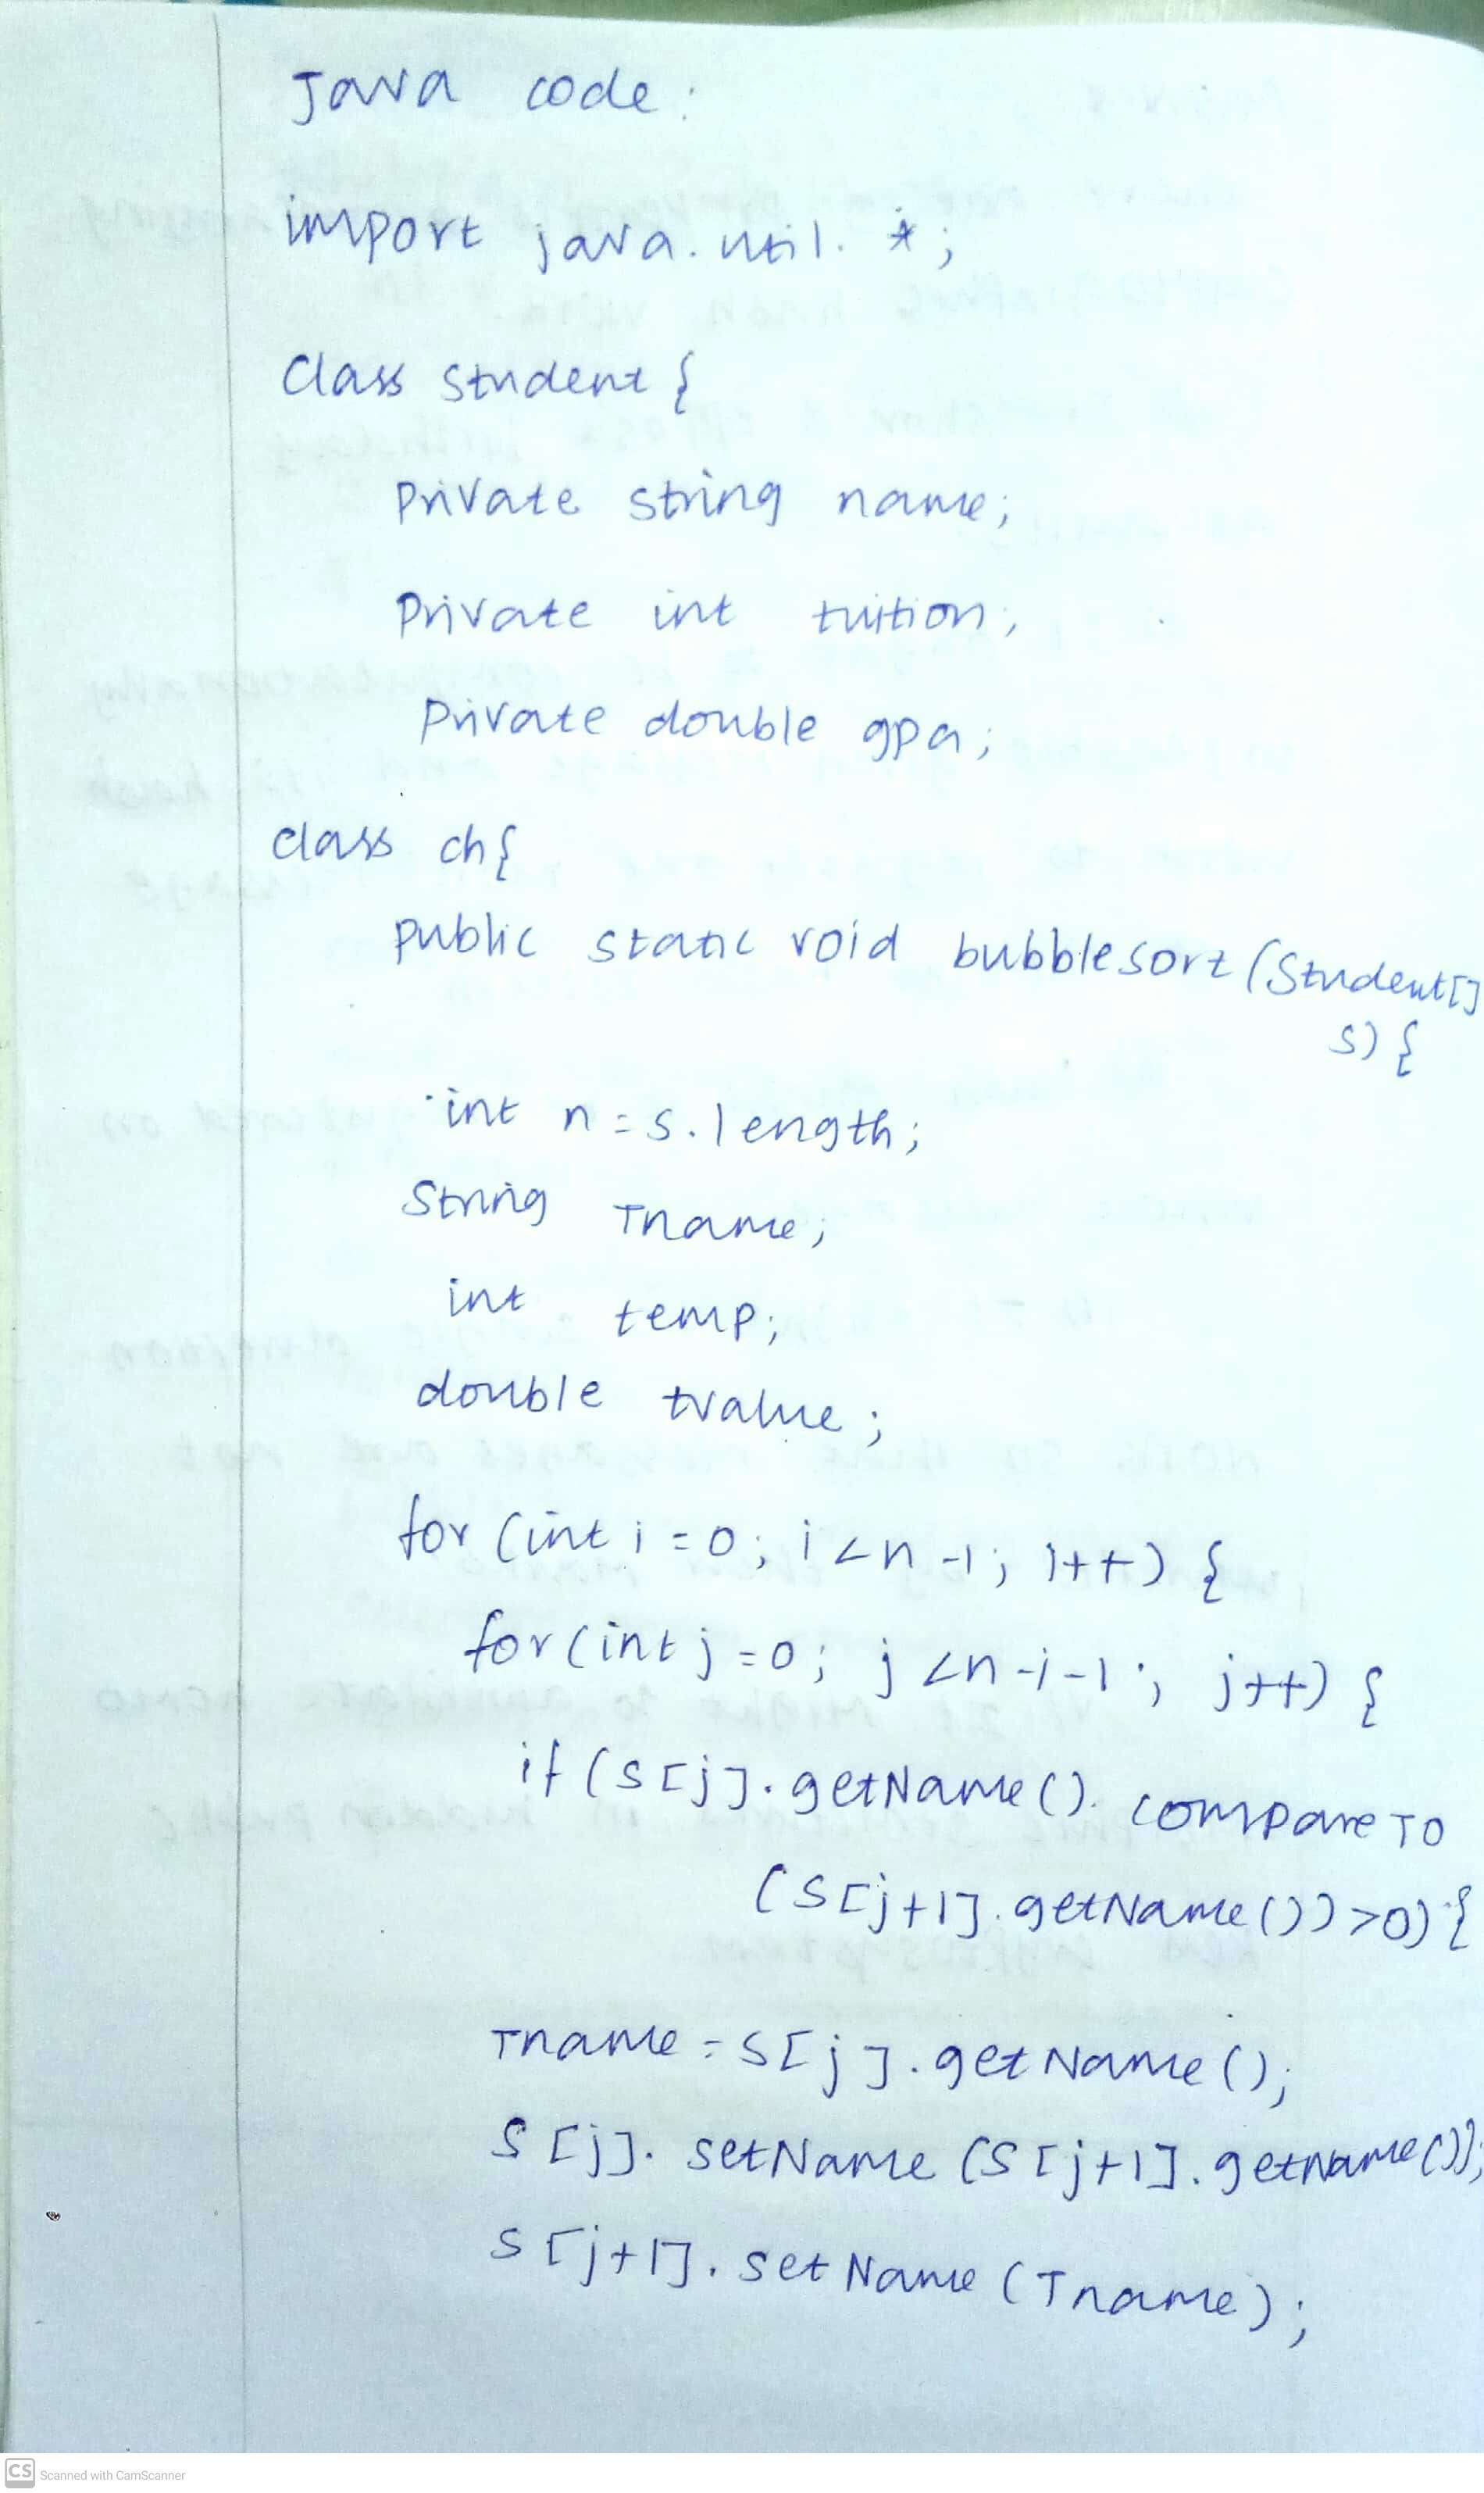 Java code:
import java.util.*;
Class Student {
Private string name;
Private int tuition;
Private double gpa;
class ch{
public static void bubblesort (Student[]
s) {
int n=s.length;
String Tname;
int temp;
double tvalue;
for (int i=0; i<n-1; i++) {
for(int j=0; j<n-i-1; j++) {
if (s[j].getName(). compareTo
(s[j+1].getName())>0) {
Tname = s[j].getName();
s[j]. setName (s[j+1].getName());
s[j+1]. setName (Tname);
CS Scanned with CamScanner